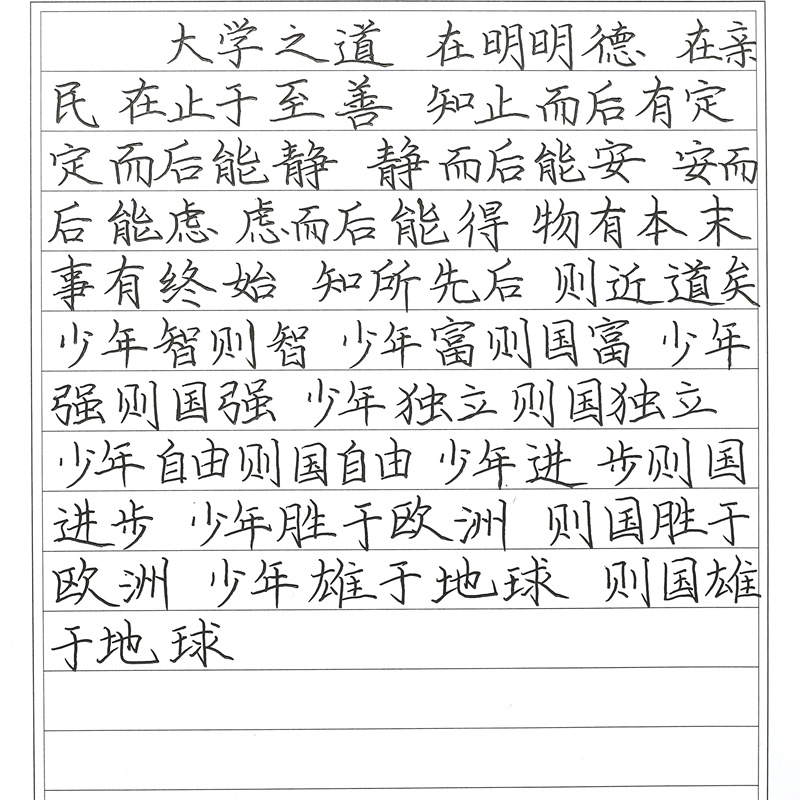 大学之道 在明明德 在亲
民 在止于至善 知止而后有定
定而后能静 静而后能安 安而
后能虑 虑而后能得 物有本末
事有终始 知所先后 则近道矣
少年智则智 少年富则国富 少年
强则国强 少年独立则国独立
少年自由则国自由 少年进 步则国
进步 少年胜于欧洲 则国胜于
欧洲 少年雄于地球 则国雄
于地球